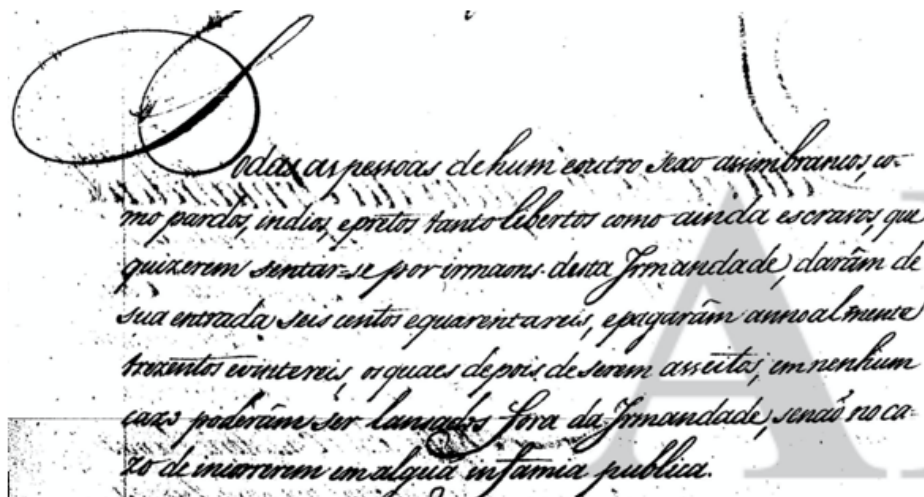 Todas as pessoas de hum e outro sexo assim brancos, co-
mo pardos, indios, e pretos tanto libertos como ainda escravos, que
quizerem sentar-se por irmaons desta Irmandade, darâm de
sua entrada seis centos e quarenta reis, e pagarâm annoalmente
trezentos e vinte reis, os quaes depois de serem asseitos, em nenhum
cazo poderâm ser lansados fora da Irmandade, senaõ no ca-
zo de incorrerem em algũa infamia publica.